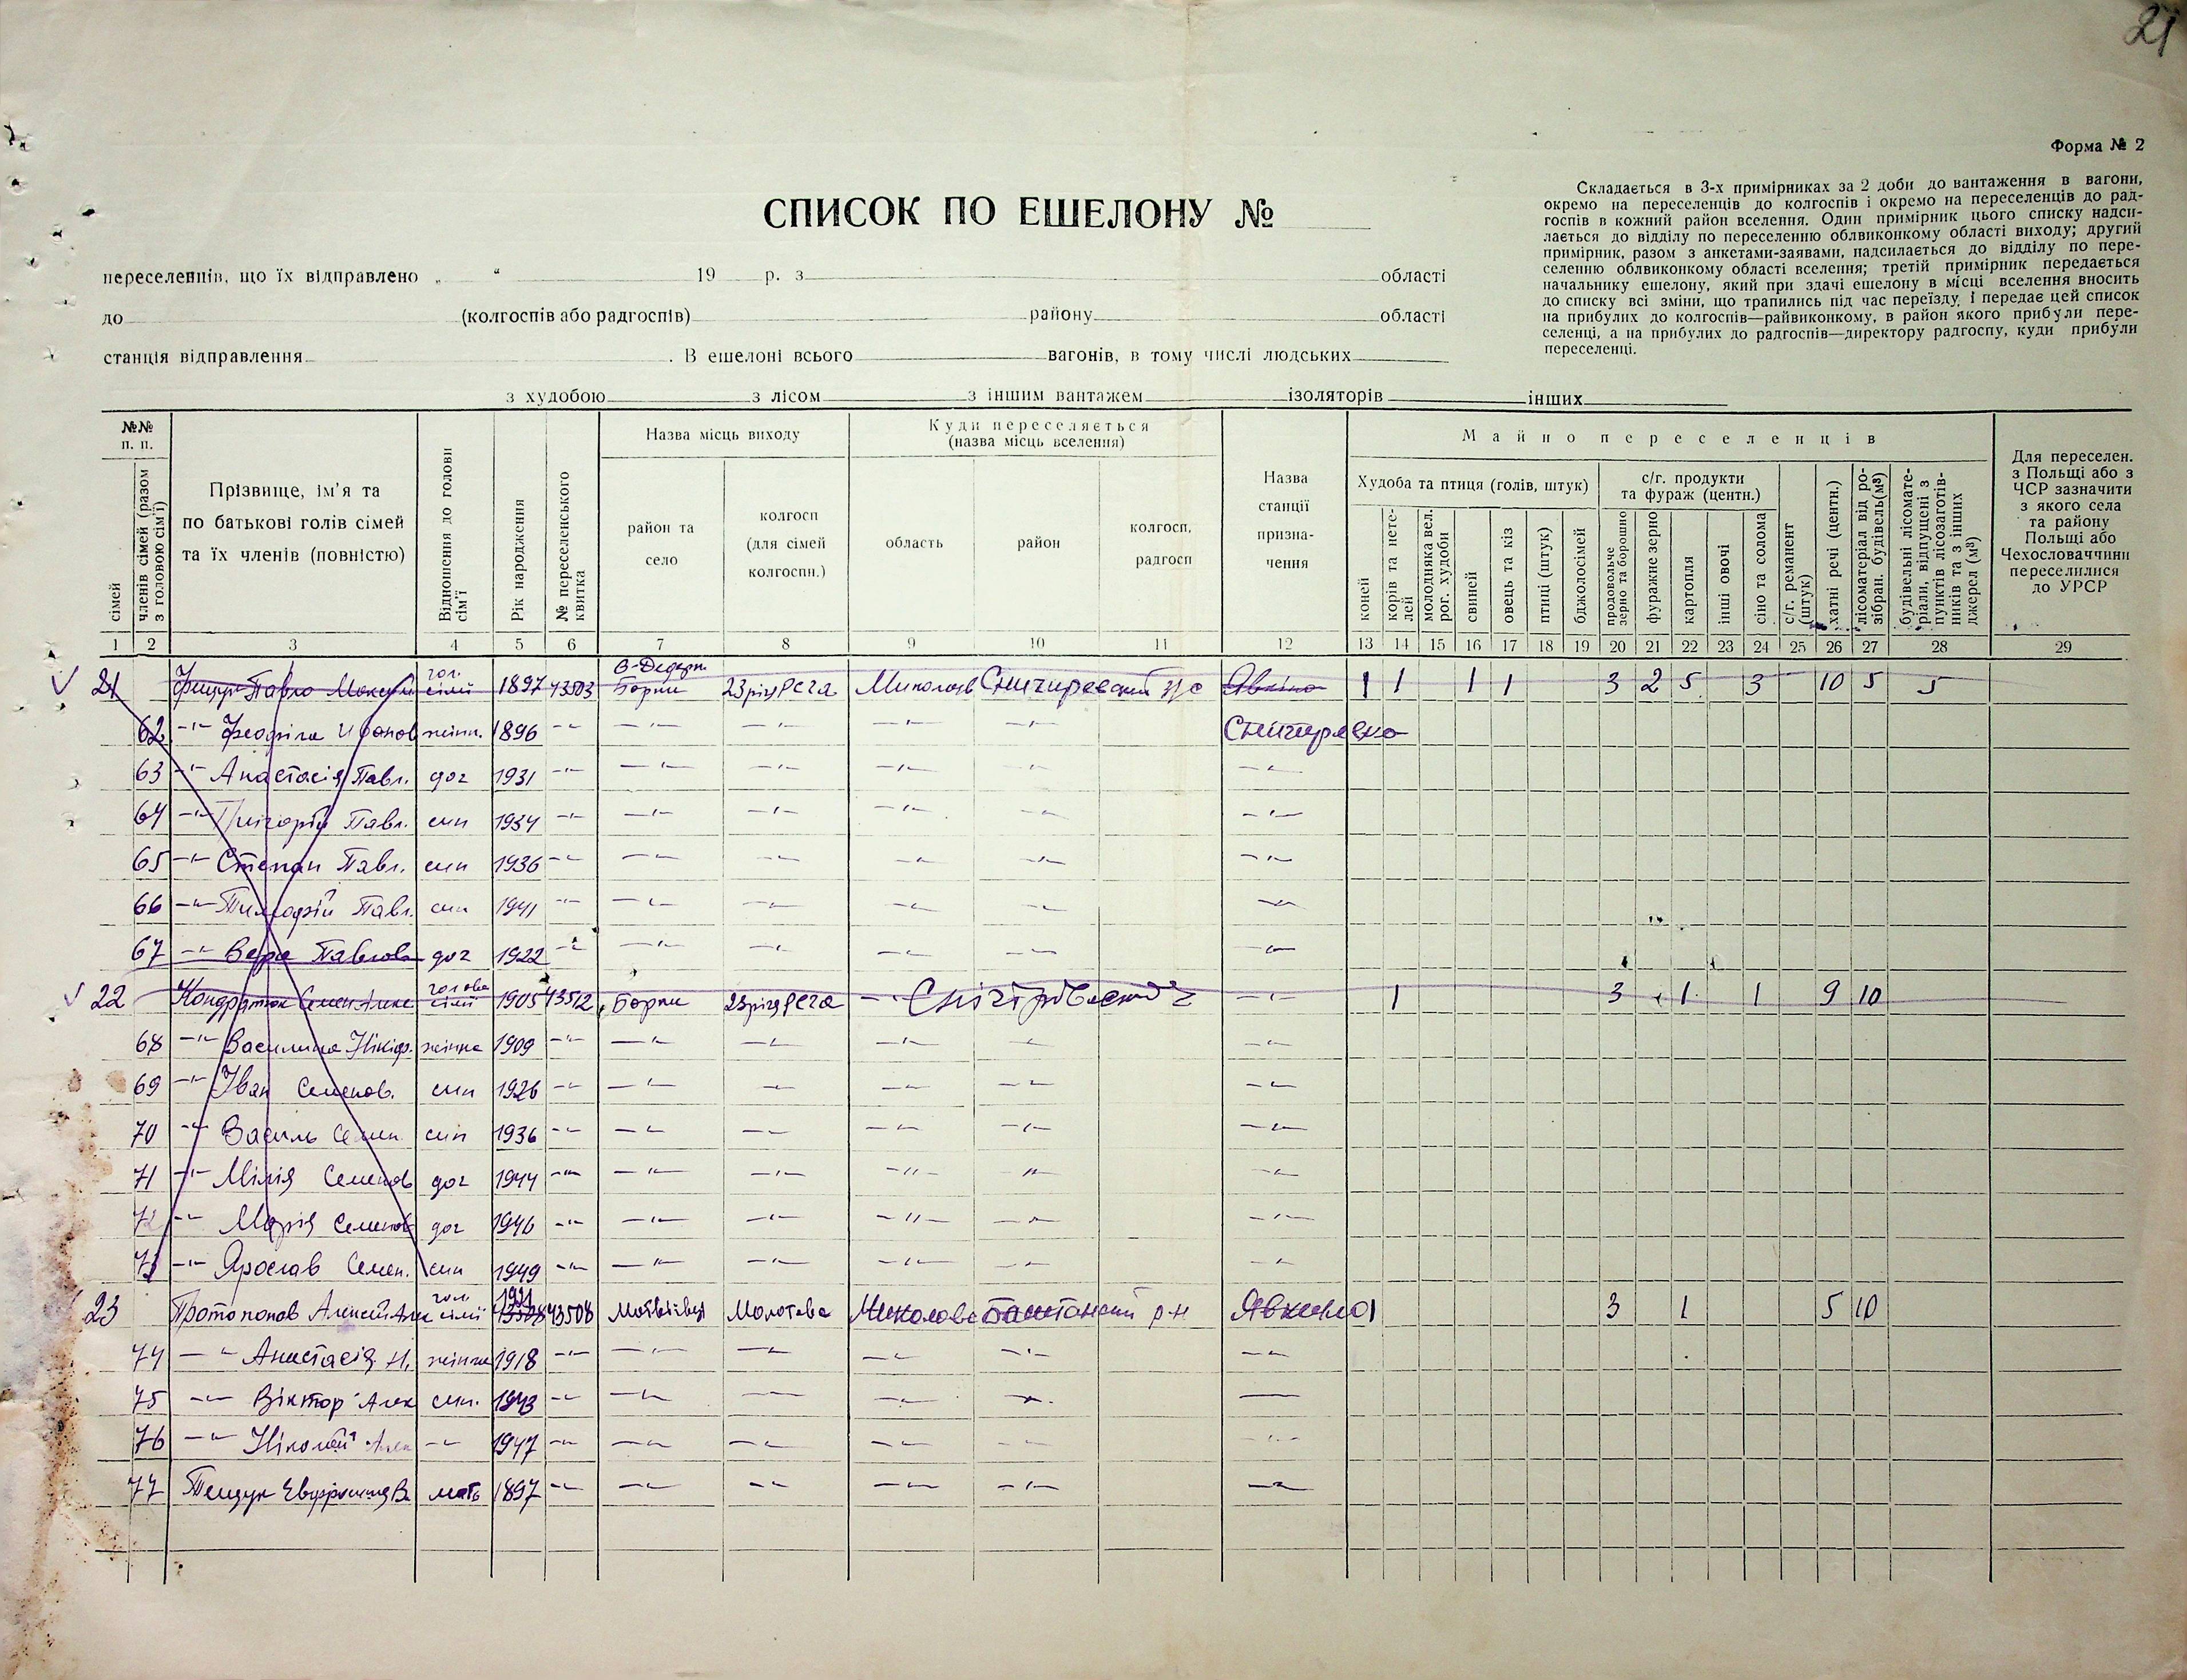 21
Форма № 2
СПИСОК ПО ЕШЕЛОНУ №
Складається в 3-х примірниках за 2 доби до вантаження в вагони,
окремо на переселенців до колгоспів і окремо на переселенців до рад-
госпів в кожний район вселення. Один примірник цього списку надси-
лається до відділу по переселенню облвиконкому області виходу; другий
примірник, разом з анкетами-заявами, надсилається до відділу по пере-
селенню облвиконкому області вселення; третій примірник передається
начальнику ешелону, який при здачі ешелону в місці вселення вносить
до списку всі зміни, що трапились під час переїзду, і передає цей список
на прибулих до колгоспів—райвиконкому, в район якого прибули пере-
селенці, а на прибулих до радгоспів—директору радгоспу, куди прибули
переселенці.
переселенців, що їх відправлено „ “ 19 р. з області
до (колгоспів або радгоспів) району області
станція відправлення . В ешелоні всього вагонів, в тому числі людських
з худобою з лісом з іншим вантажем ізоляторів інших
№№ п. п.
сімей
членів сімей (разом з головою сім'ї)
Прізвище, ім'я та
по батькові голів сімей
та їх членів (повністю)
Відношення до голови сім'ї
Рік народження
№ переселенського квитка
Назва місць виходу
район та
село
колгосп
(для сімей
колгоспн.)
Куди переселяється
(назва місць вселення)
область
район
колгосп,
радгосп
Назва
станції
призна-
чення
Майно переселенців
Худоба та птиця (голів, штук)
коней
корів та нете-
лей
молодняка вел.
рог. худоби
свиней
овець та кіз
птиці (штук)
бджолосімей
с/г. продукти
та фураж (центн.)
продовольче
зерно та борошно
фуражне зерно
картопля
інші овочі
сіно та солома
с/г. реманент
(штук)
хатні речі (центн.)
лісоматеріал від ро-
зібран. будівель (м³)
будівельні лісомате-
ріали, відпущені з
пунктів лісозаготів-
ників та з інших
джерел (м³)
Для переселен.
з Польщі або з
ЧСР зазначити
з якого села
та району
Польщі або
Чехословаччини
переселилися
до УРСР
1 2 3 4 5 6 7 8 9 10 11 12 13 14 15 16 17 18 19 20 21 22 23 24 25 26 27 28 29
21 Павло гол. сімї 1897 43503 Борки Миколаїв 1 1 1 1 3 2 5 3 10 5 5
62 -"- жінк. 1896 -"- -"- -"- -"- -"-
63 -"- Анастасія Павл. доч 1931 -"- -"- -"- -"- -"- -"-
64 -"- Григорій Павл. син 1934 -"- -"- -"- -"- -"- -"-
65 -"- Степан Павл. син 1936 -"- -"- -"- -"- -"- -"-
66 -"- Тимофій Павл. син 1941 -"- -"- -"- -"- -"- -"-
67 -"- Вера Павлова доч 1922 -"- -"- -"- -"- -"- -"-
22 Кондратюк Семен голова сімї 1905 43512 Борки -"- -"- 1 3 1 1 9 10
68 -"- Василина Нікіф. жінка 1909 -"- -"- -"- -"- -"- -"-
69 -"- Іван Семенов. син 1926 -"- -"- -"- -"- -"- -"-
70 -"- Василь Семен. син 1936 -"- -"- -"- -"- -"- -"-
71 -"- Семенов доч 1944 -"- -"- -"- -"- -"- -"-
72 -"- Марія Семенов доч 1946 -"- -"- -"- -"- -"- -"-
73 -"- Ярослав Семен. син 1949 -"- -"- -"- -"- -"- -"-
23 Протопопов Алексей гол. сімї 43508 Молотова Баштанский р-н 3 1 5 10
74 -"- Анастасія Н. жінка 1918 -"- -"- -"- -"- -"- -"-
75 -"- Віктор Алек син. 1943 -"- -"- -"- -"- -"-
76 -"- Ніколай Алек -"- 1947 -"- -"- -"- -"- -"- -"-
77 мать 1897 -"- -"- -"- -"- -"- -"-